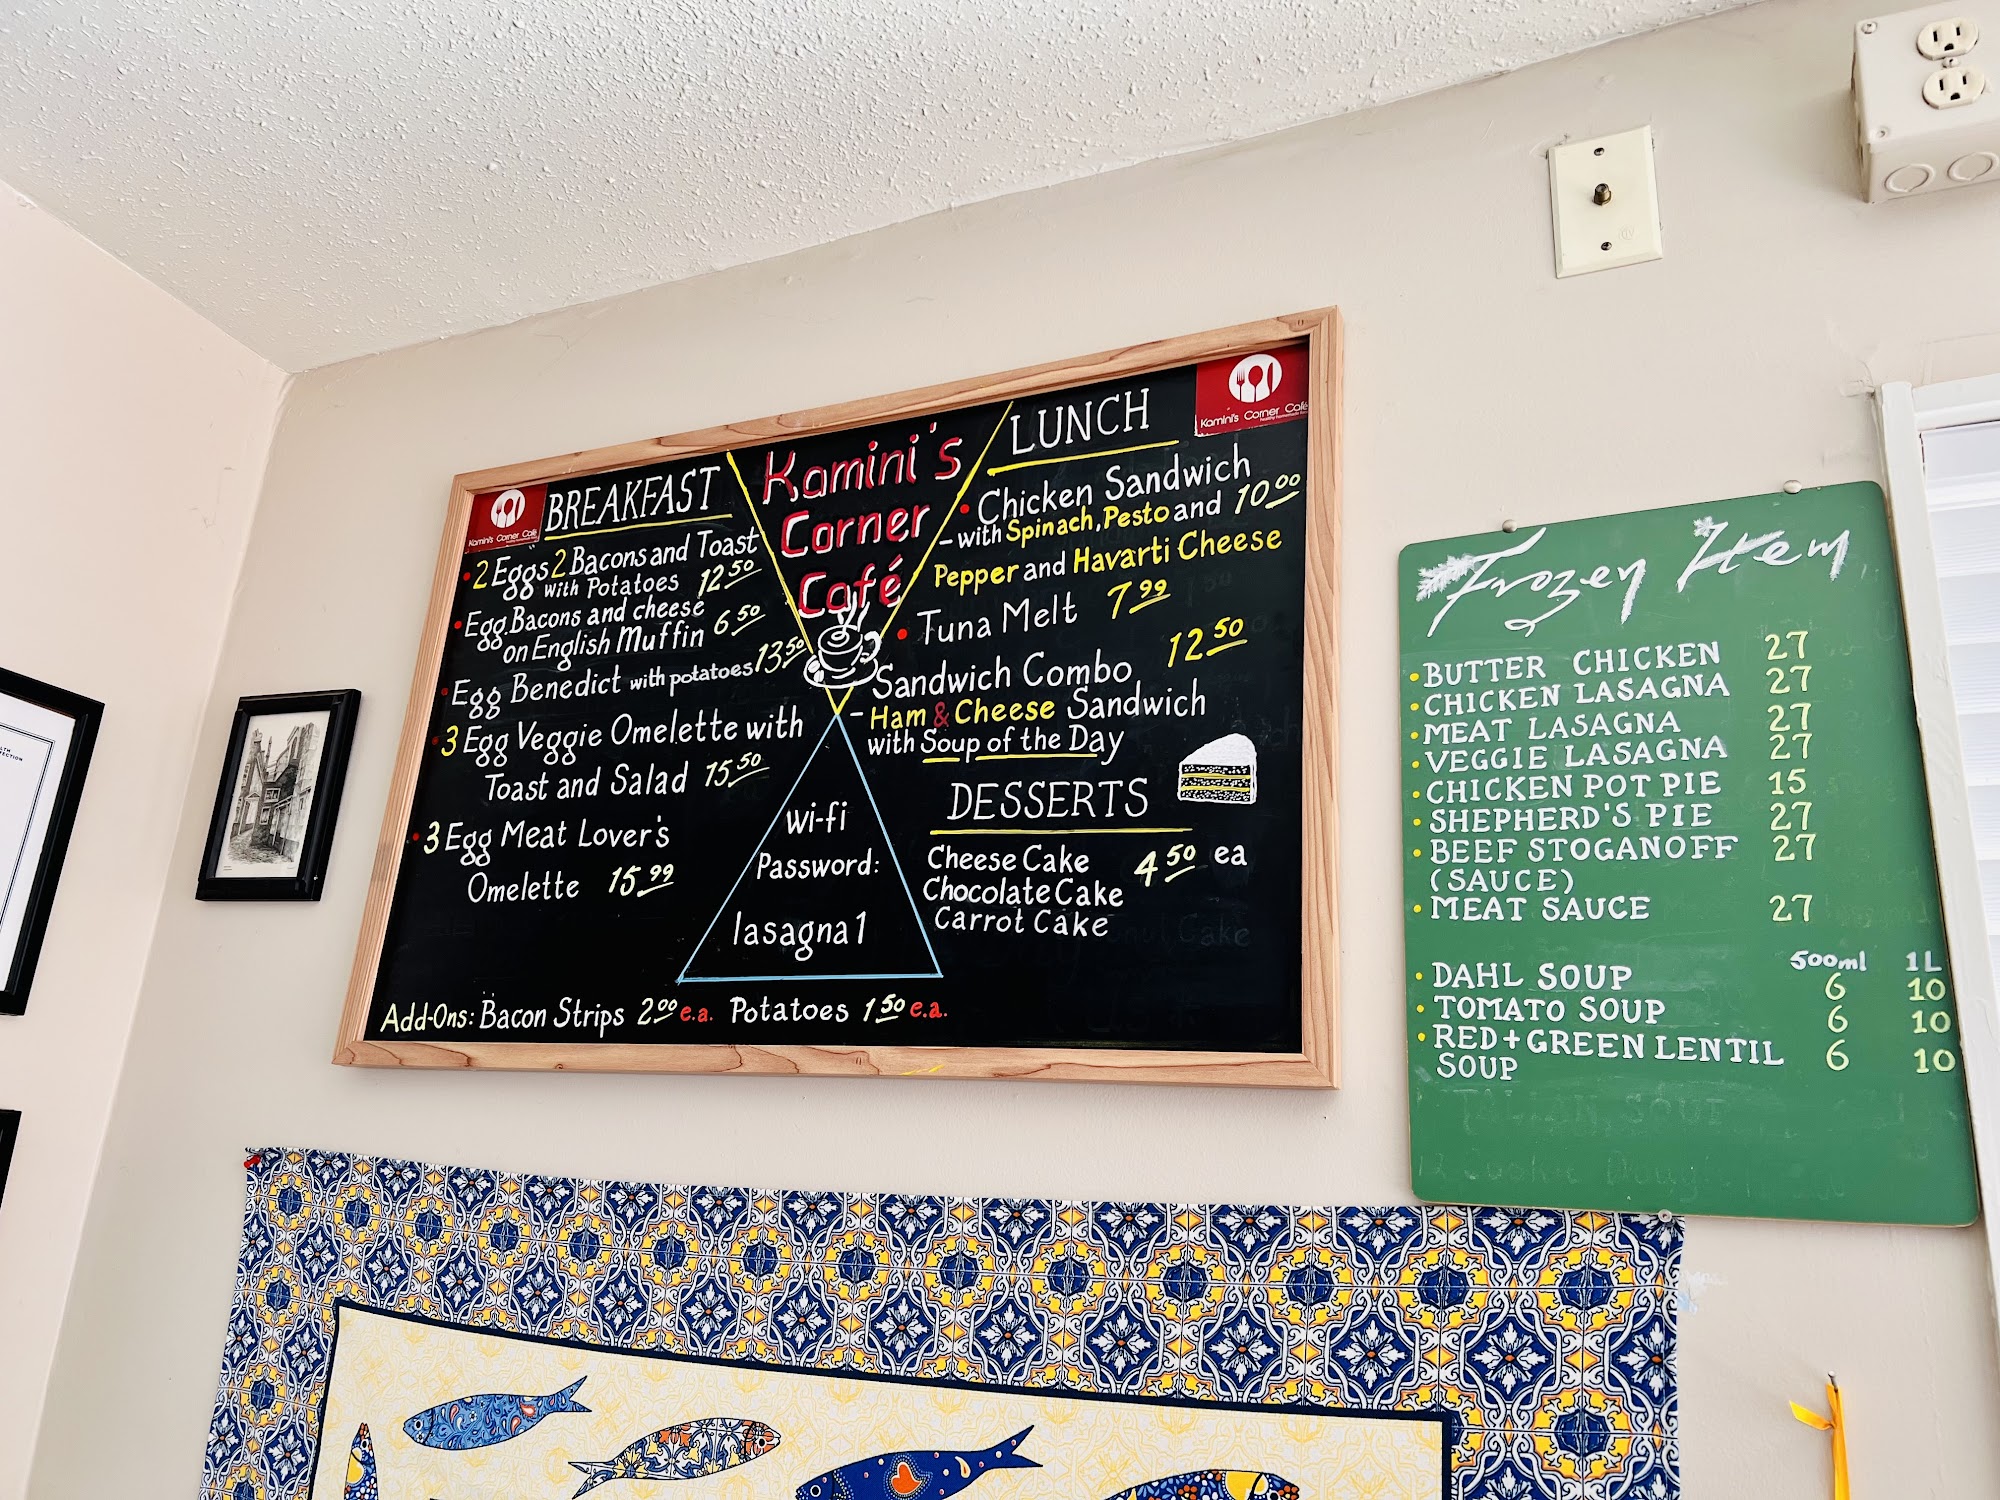 Kamini's Corner Café
BREAKFAST
• 2 Eggs 2 Bacons and Toast
with Potatoes 12.50
• Egg, Bacons and cheese
on English Muffin 6.50
• Egg Benedict with potatoes 13.50
• 3 Egg Veggie Omelette with
Toast and Salad 15.50
• 3 Egg Meat Lover's
Omelette 15.99
Kamini's
Corner
Café
wi-fi
Password:
lasagna1
Kamini's Corner Café
LUNCH
• Chicken Sandwich
- with Spinach, Pesto and 10.00
Pepper and Havarti Cheese
• Tuna Melt 7.99
Sandwich Combo 12.50
- Ham & Cheese Sandwich
with Soup of the Day
DESSERTS
Cheese Cake 4.50 ea
Chocolate Cake
Carrot Cake
Add-Ons: Bacon Strips 2.00 e.a. Potatoes 1.50 e.a.
Frozen Item
• BUTTER CHICKEN 27
• CHICKEN LASAGNA 27
• MEAT LASAGNA 27
• VEGGIE LASAGNA 27
• CHICKEN POT PIE 15
• SHEPHERD'S PIE 27
• BEEF STOGANOFF 27
(SAUCE)
• MEAT SAUCE 27
500ml 1L
• DAHL SOUP 6 10
• TOMATO SOUP 6 10
• RED+GREEN LENTIL 6 10
SOUP